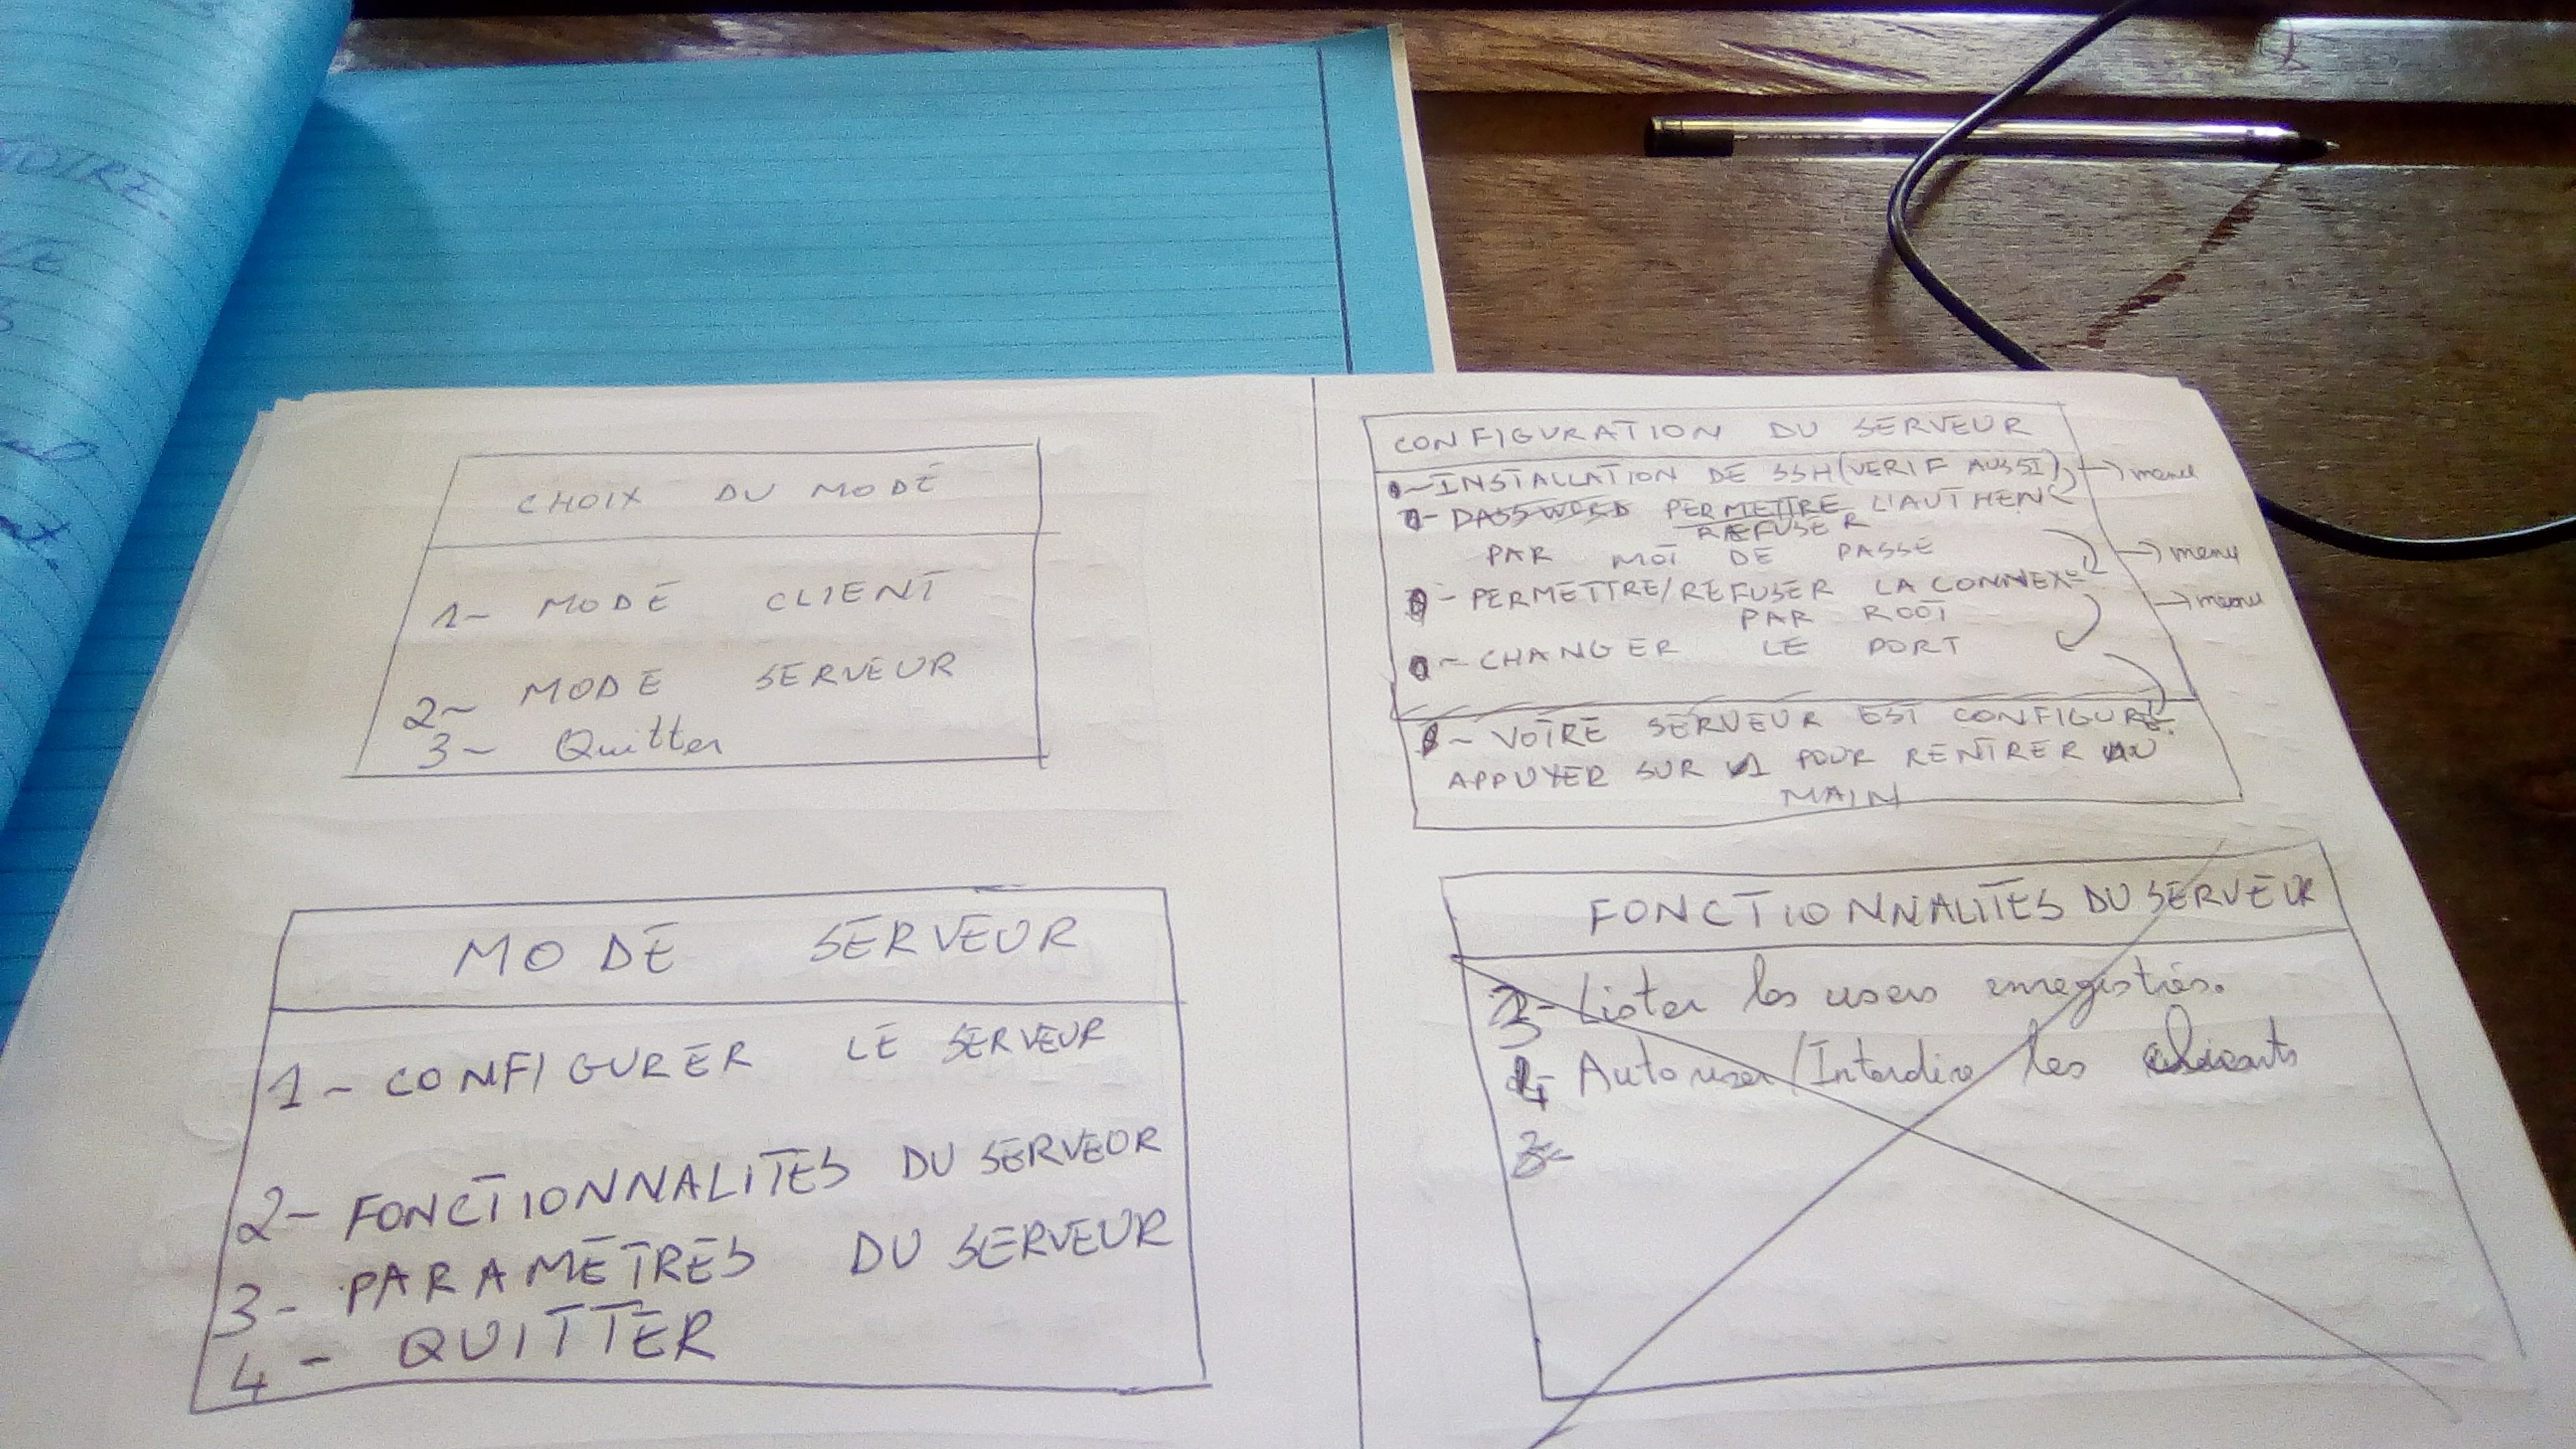 TOIRE.
CHOIX DU MODE
1- MODE CLIENT
2- MODE SERVEUR
3- Quitter
MODE SERVEUR
1- CONFIGURER LE SERVEUR
2- FONCTIONNALITES DU SERVEUR
3- PARAMETRES DU SERVEUR
4- QUITTER
CONFIGURATION DU SERVEUR
- INSTALLATION DE SSH (VERIF AUSSI) → menu
- PASSWORD PERMETTRE L'AUTHEN
REFUSER
PAR MOT DE PASSE → menu
- PERMETTRE/REFUSER LA CONNEX° → menu
PAR ROOT
- CHANGER LE PORT
- VOTRE SERVEUR EST CONFIGURE.
APPUYER SUR 1 POUR RENTRER AU
MAIN
FONCTIONNALITES DU SERVEUR
3- Lister les users enregistrés.
4- Autoriser/Interdire les clients
3-